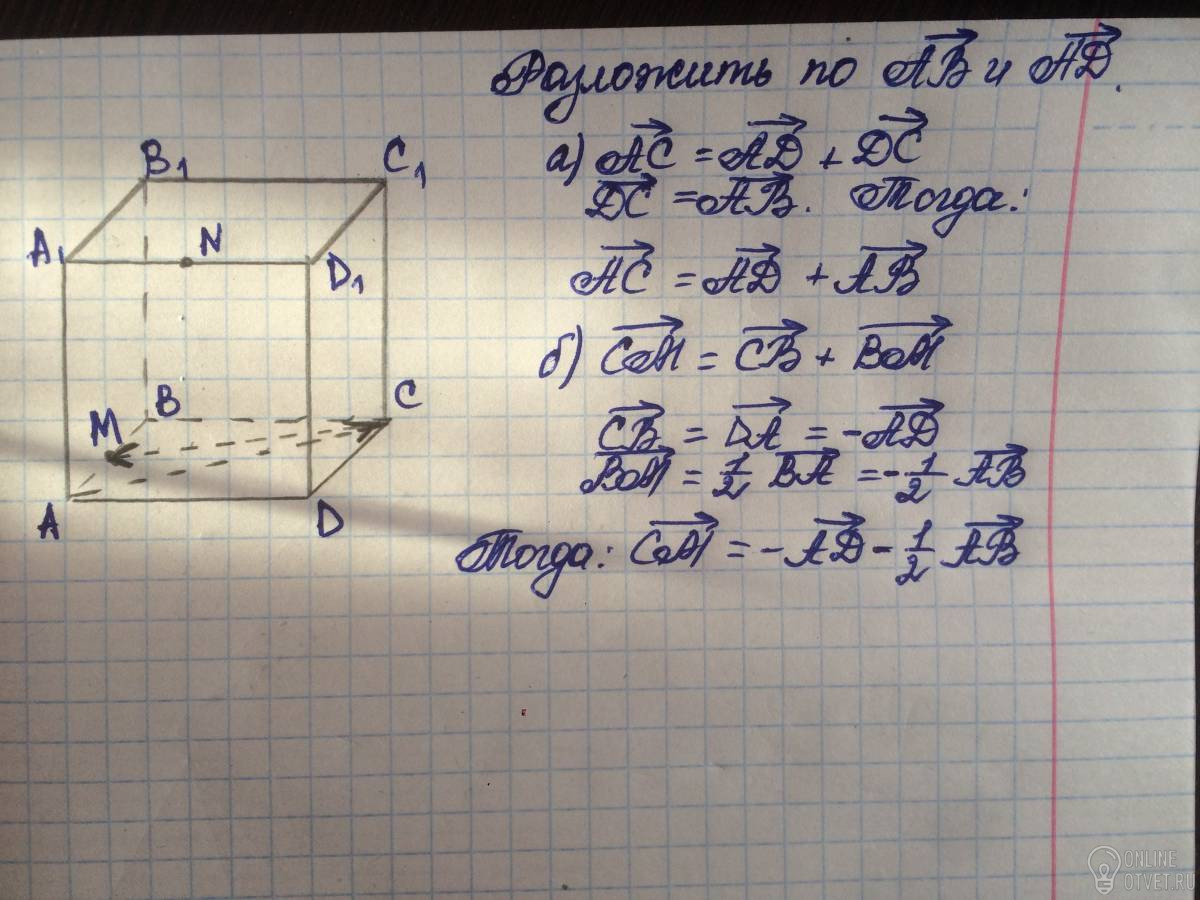 Разложить по AB и AD.
а) AC = AD + DC
DC = AB. Тогда:
AC = AD + AB
б) CM = CB + BM
CB = DA = -AD
BM = 1/2 BA = -1/2 AB
Тогда: CM = -AD - 1/2 AB
B1 C1
A1 N D1
M B C
A D
ONLINE
OTVET.RU